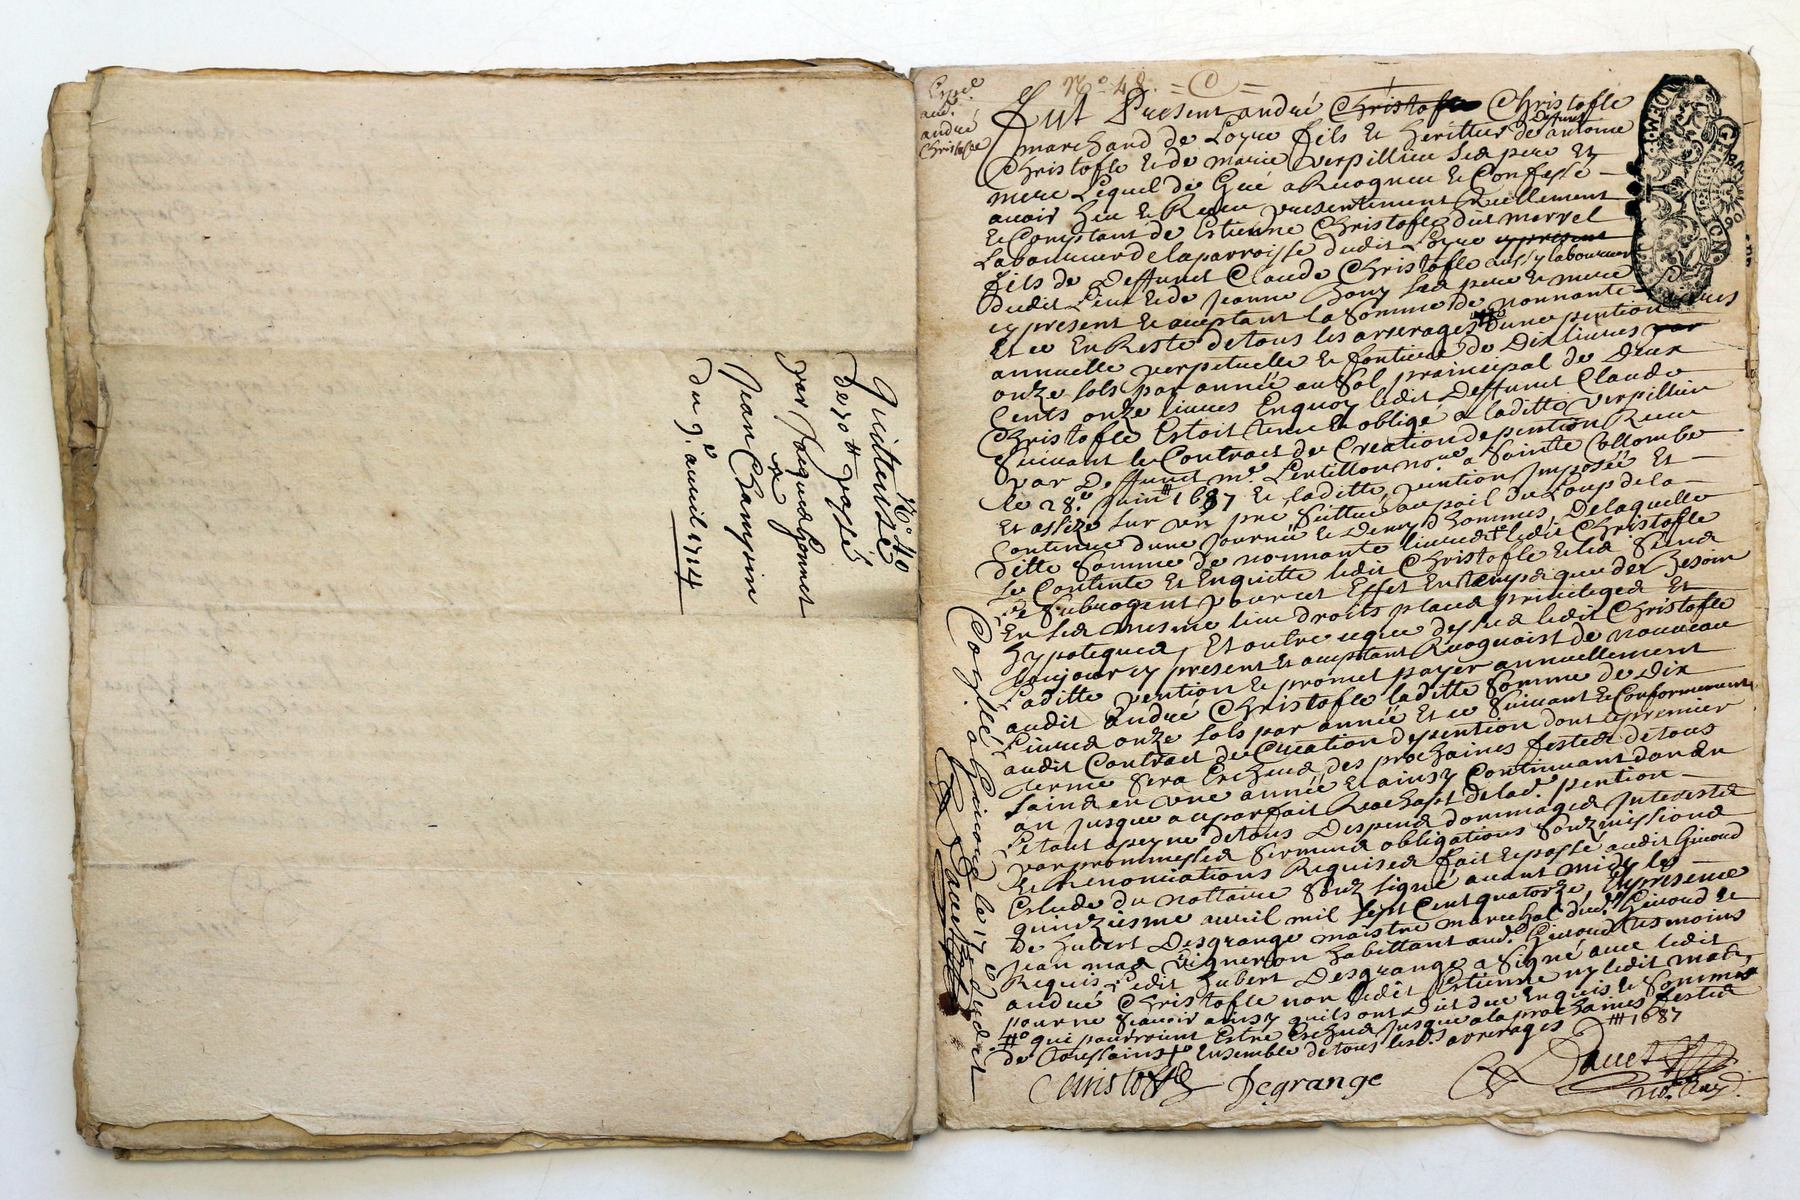 N.o 40
Quittance
De 70 ₶ passé
par Jacques Gonnet
a
Jean Champin
du 9.e auvril 1714
Expéd.
aud.
andré
Christofle
N.o 48. = C =
Fut Present andré Christofle Christofle
marchand de Loyre fils et heritier de Deffunct antoine
Christofle et de marie verpillieu ses pere et
mere Lequel de Gré a Recogneu et Confessé
avoir heu et Receu presentement Reellement
et Comptant de Estienne Christofle dit morrel
Laboureur de laparroisse dudit Loyre ypresent
fils de Deffunct Claude Christofle aussy laboureur
dudit Lieu et de Jeanne bony ses pere et mere
cy present et aceptant la somme de nonnante livres
Et ce En Reste de tous les arrerages d'une pention
annuelle perpetuelle et fontiere de Dix livres par
onze sols par année au sol prainsipal de Deux
Cents onze livres Enquoy ledit Deffunct Claude
Christofle Estoit tenu et obligé a laditte verpillieu
suivant le Contract de Creation de pention Receu
par Deffunct m.e Lentillon no.re a Sainte Collombe
le 28.e Juin 1687 et laditte pention Imposée Et
Et assize sur un pré Scittué au pail du Loup de la
Contenue d'une Journée et Demy d'hommes Delaquelle
ditte somme de nonnante livres ledit Christofle
se Contente et Enquitte ledit Christofle et les siens
se subrogent pour cet Effet En temps que de Besoin
En ses mesme lieu droits places privileges Et
hypoteques, Et outre ce que dessus ledit Christofle
toujours cy present et aceptant Recognoist de nouveau
Laditte pention et promet payer annuellement
audit andré Christofle laditte somme de Dix
Livres onze sols par année Et ce suivant et Conformement
audit Contract de Creation de pention dont le premier
terme sera Escheus des prochaines festes de tous
saincts en une année et ainsy Continuant dan dn
an jusque au parfait Rachapt de lad. pention
Le tout a peyne de tous Despens dommages Interests
par prommesses serments obligations soubzmissions
Et Renonciations Requises fait et passé audit Givord
Estude du nottaire soubz signé avant midy le
quinziesme avril mil sept cent quatorze, En presence
de hubert Desgrange maistre mareschal dud. Givord et
Jean mas vigneron habittant aud. Givord tesmoins
Requis Ledit hubert Desgrange a signé avec ledit
andré Christofle non ledit Estienne ny ledit mas
pour ne sçavoir ainsy quils ont dit de ce Enquis et sommés
qui pourroient Estre Escheus jusque a la prochaines festes
de Toussaincts Ensemble de tous lesd. arrerages 1687
Christofle Degrange Dauet
no.re Royal
Conллé a Givord le 17.e dudit